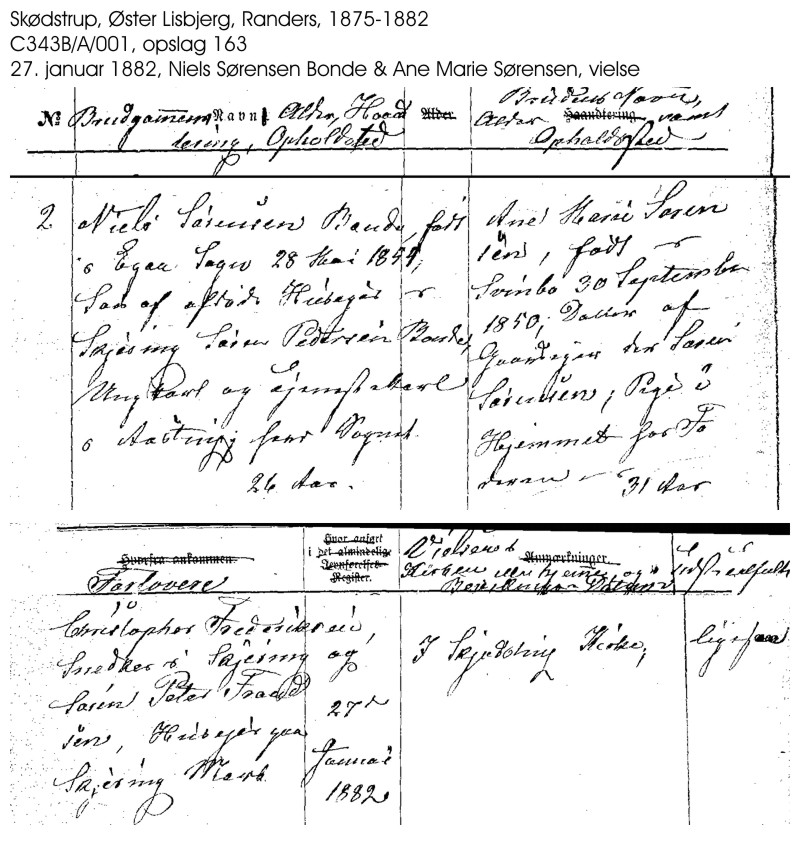 Skødstrup, Øster Lisbjerg, Randers, 1875-1882
C343B/A/001, opslag 163
27. januar 1882, Niels Sørensen Bonde & Ane Marie Sørensen, vielse
№ Brudgommens Navn, Alder, Haand
tering, Opholdssted
Alder
Brudens Navn,
Alder Haandtering samt
Opholdssted
2. Niels Sørensen Bonde, født
i Egaa Sogn 28 Mai 1855,
Søn af afdøde Huseier i
Skjæring Søren Pedersen Bonde,
Ungkarl og Tjenestekarl
i Hjemmet her Sognet
26 Aar.
Ane Marie Søren
sen, født i
Svinbo 30 September
1850, Datter af
Gaardeier der Søren
Sørensen, Pige i
Hjemmet hos Fa
deren
31 Aar
Hvorfra ankommen.
Forlovere
Hvor anført
i det almindelige
Jevnførelses-
Register.
Vielsen i
Kirken eller hjemme og i
Anmærkninger
Christopher Frederiksen,
Snedker i Skjæring og
Søren Peter Frand
sen, Huseier paa
Skjæring Mark
27de
Januar
1882
I Skjødstrup Kirke,
ligesaa